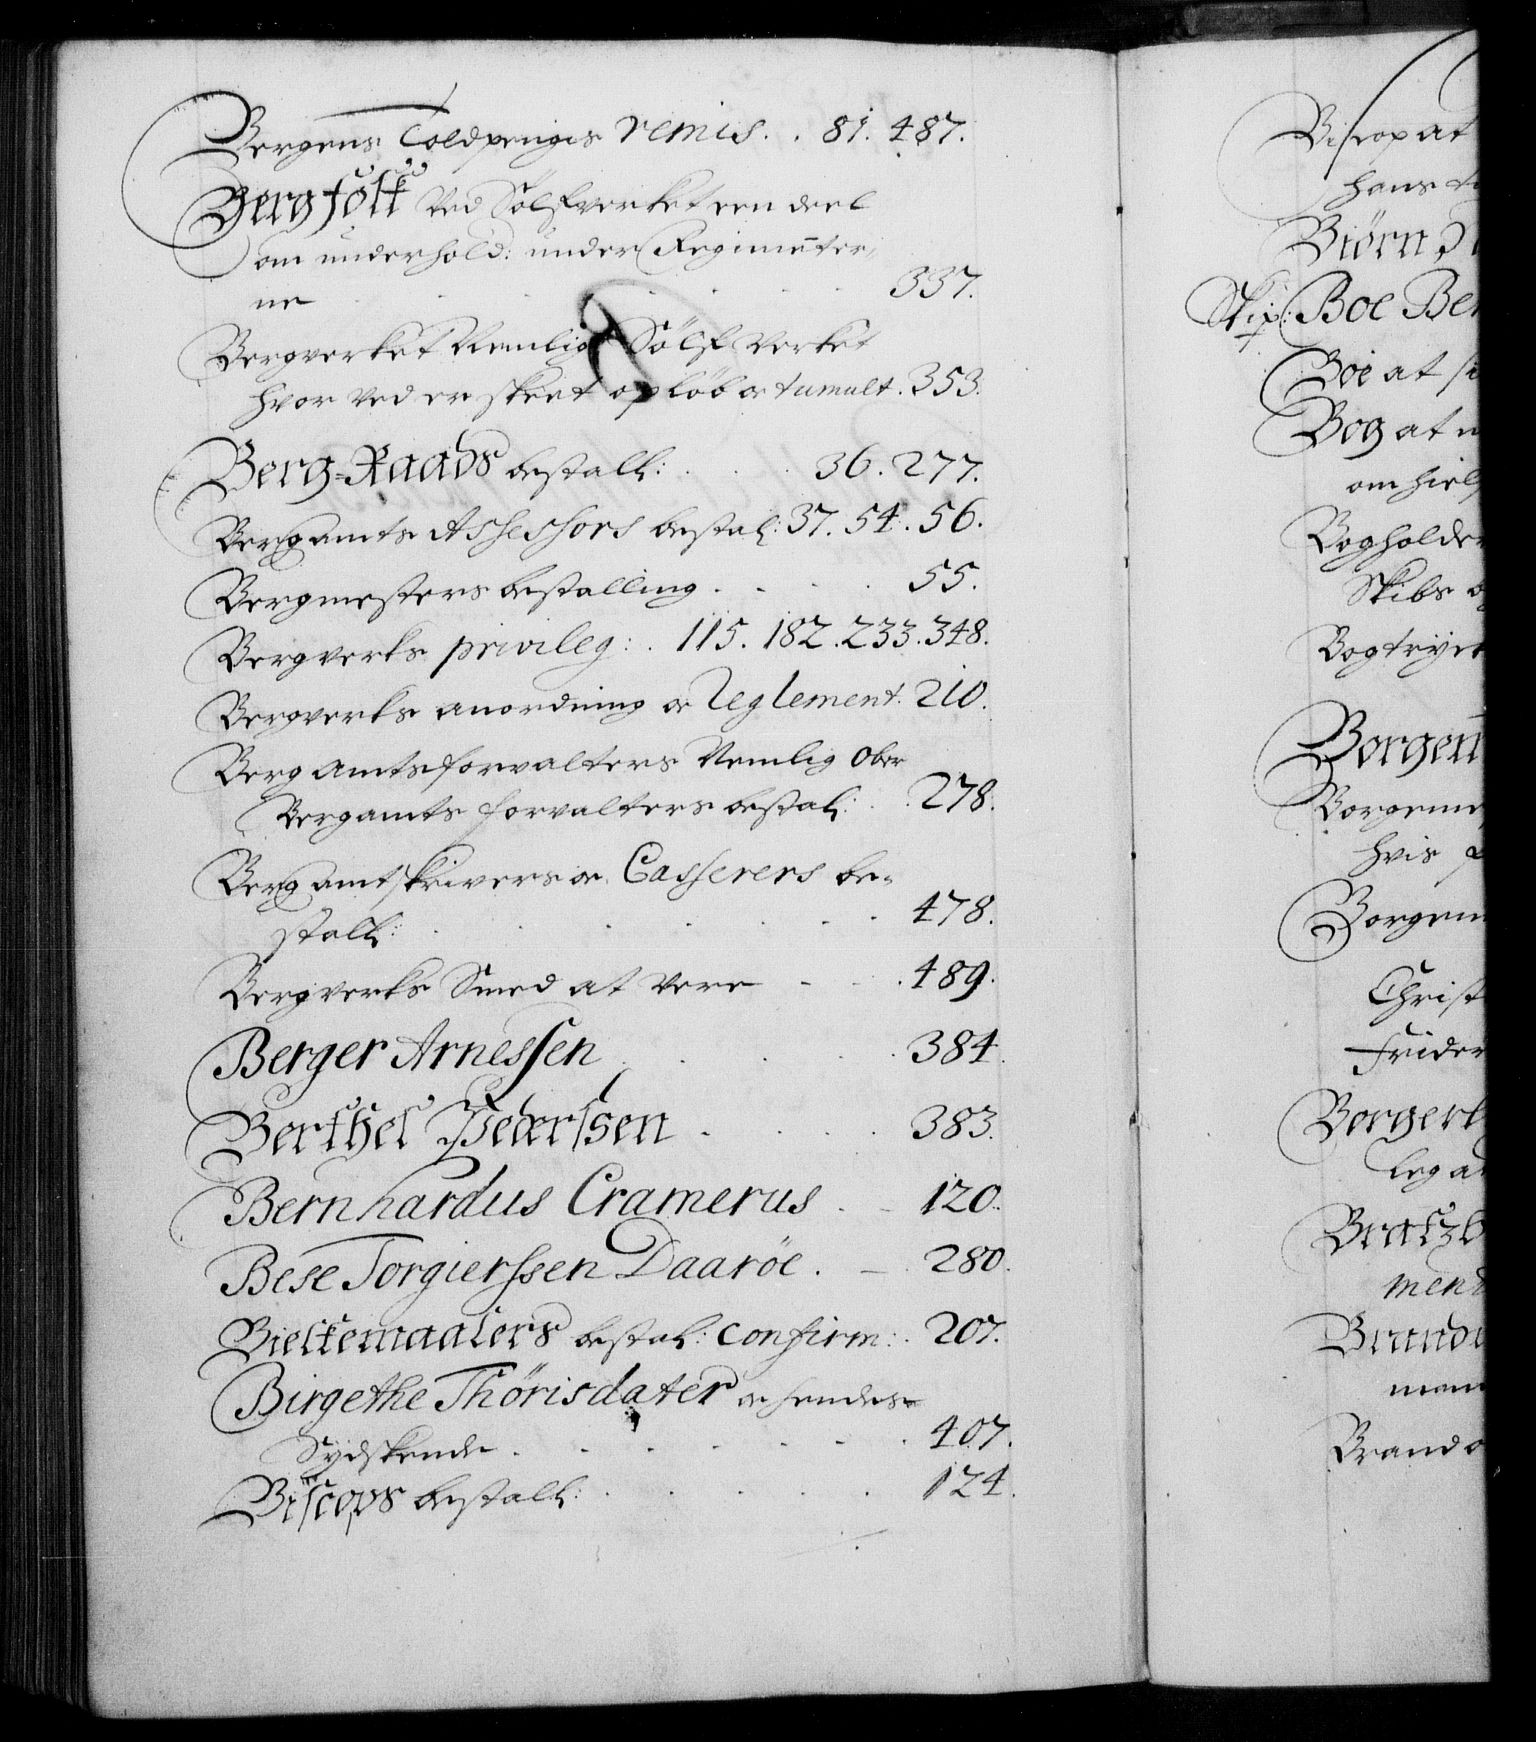 Bergens Toldpenges remis. . 81. 487.
Bergfolk ved Sølfverket een deel
om underhold: under Regimenter,
ne . . . . . . . 337.
Bergverket Nemlig Sølf Verket
hvor ved er skeet opløb oc tumult. 353.
Berg-Raads bestall: . . . 36. 277.
Bergamts Assessors bestal: 37. 54. 56.
Bergmesters bestalling . . . 55.
Bergverks privileg: . 115. 182. 233. 348.
Bergverks anordning oc Reglement. 210.
Berg Amtsforvalters Nemlig Ober
Bergamts forvalters bestal: . . 278.
Berg Amtskrivers oc Casserers be-
stall: . . . . . . 478.
Bergverks Smed at være - - . 489.
Berger Arnessen . . . . 384.
Berthel Pedersen . . . . 383.
Bernhardus Cramerus . - 120.
Bese Torgierssen Daarøe . - . 280.
Bielkemaalers bestal: confirm: . 207.
Birgethe Thörisdater oc hendes
Sydskende . . . . . . 407.
Biscops bestall: . . . . . 124.
Biscop at
hans
Biørn
Skip: Boe Ber
Boe at
Bog at
om hielp
Bogholder
Skibs
Bogtryck
Borgen
Borgeme
hvis
Borgem
Christ
Frider
Borgers
leg
Bratzb
ment
Brand